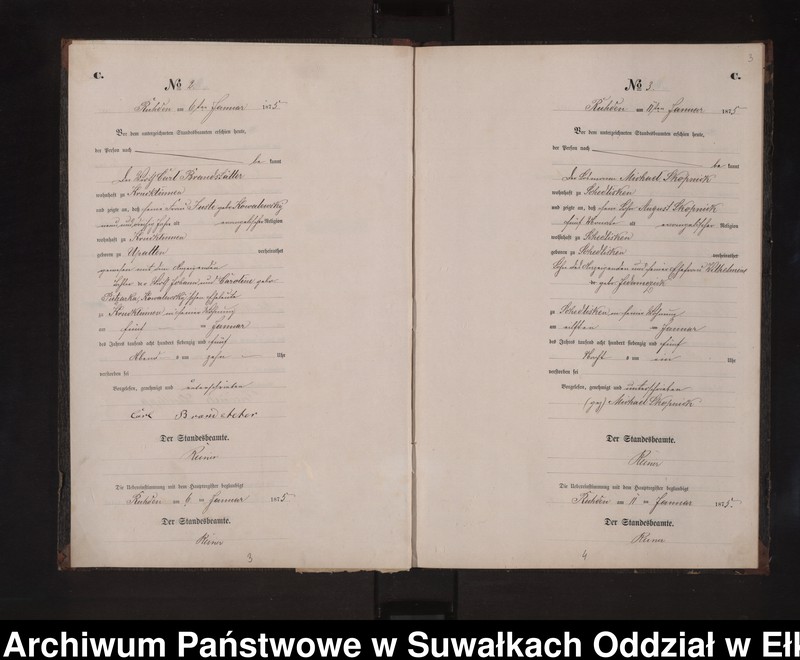 C.
№ 2
Ruhden am 6ten Januar 1875
Vor dem unterzeichneten Standesbeamten erschien heute,
der Person nach
be kannt
der Carl Brandstätter
wohnhaft zu
und zeigte an, daß seine Frau Juste geb. Kowalewsky
evangelischer Religion
wohnhaft zu
geboren zu verheirathet
gewesen mit dem Anzeigenden
Tochter der Johann und Caroline geb.
Kowalewsky'schen Eheleute
zu in seiner Wohnung
am fünf ten Januar
des Jahres tausend acht hundert siebenzig und fünf
Abends um zehn Uhr
verstorben sei
Vorgelesen, genehmigt und unterschrieben
Carl Brandstetter
Der Standesbeamte.
Die Uebereinstimmung mit dem Hauptregister beglaubigt
Ruhden am 6 ten Januar 1875
Der Standesbeamte.
3
3
C.
№ 3
Ruhden am 11ten Januar 1875
Vor dem unterzeichneten Standesbeamten erschien heute,
der Person nach
be kannt
der Michael Skopnick
wohnhaft zu Schedlisken
und zeigte an, daß sein Sohn August Skopnick
fünf Monate alt evangelischer Religion
wohnhaft zu Schedlisken
geboren zu Schedlisken verheirathet
Sohn des Anzeigenden und seiner Ehefrau Wilhelmine
geb.
zu Schedlisken in seiner Wohnung
am elften ten Januar
des Jahres tausend acht hundert siebenzig und fünf
Nachts um ein Uhr
verstorben sei
Vorgelesen, genehmigt und unterschrieben
(gez) Michael Skopnick
Der Standesbeamte.
Die Uebereinstimmung mit dem Hauptregister beglaubigt
Ruhden am 11 ten Januar 1875
Der Standesbeamte.
4
Archiwum Państwowe w Suwałkach Oddział w Ełk